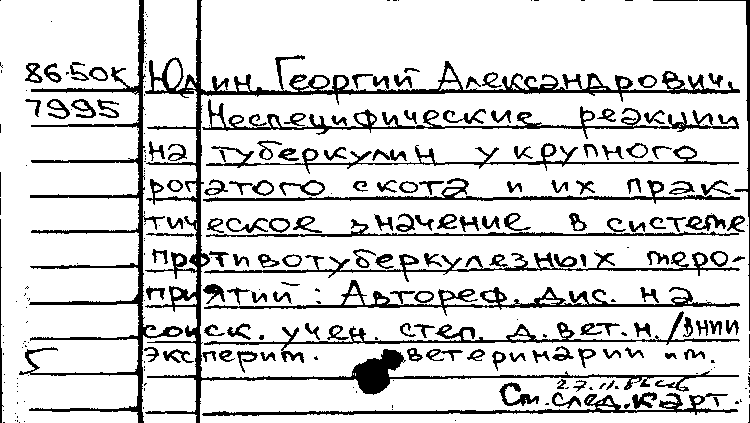 86-50К Юдин, Георгий Александрович.
7995 Неспецифические реакции
на туберкулин у крупного
рогатого скота и их прак-
тическое значение в системе
противотуберкулезных меро-
приятий : Автореф. дис. на
соиск. учен. степ. д. вет. н. /ВНИИ
эксперим. ветеринарии им.
27.11.86
См. след. карт.